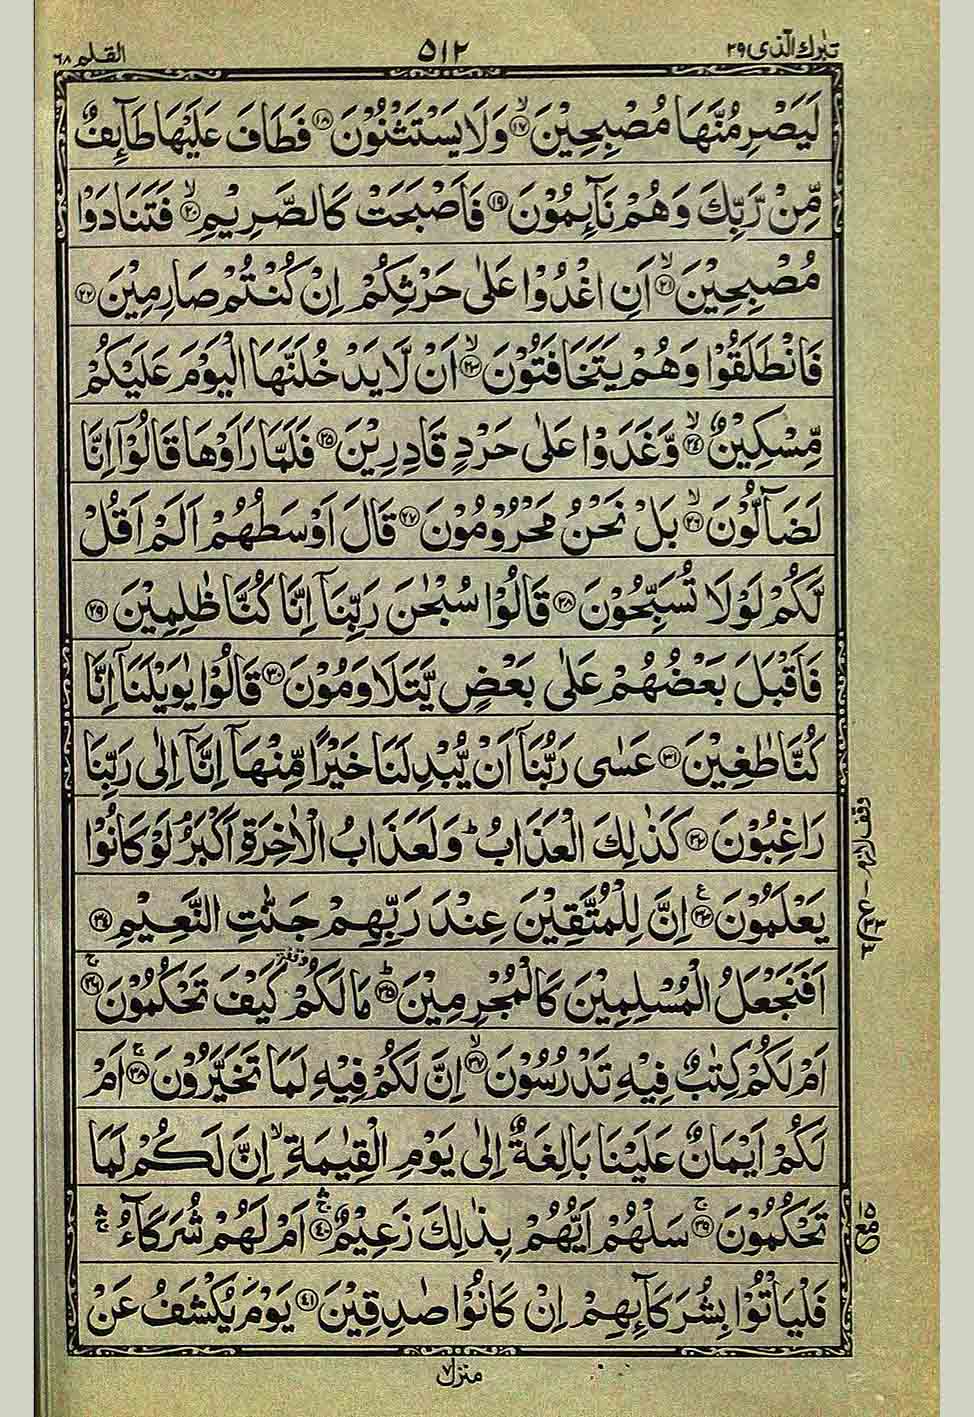 تبٰرك الذی ٢٩ ٥١٢ القلم ٦٨
لَيَصْرِمُنَّهَا مُصْبِحِيْنَ ۙ‏١٧ وَلَا يَسْتَثْنُوْنَ ١٨ فَطَافَ عَلَيْهَا طَآئِفٌ
مِّنْ رَّبِّكَ وَهُمْ نَآئِمُوْنَ ١٩ فَاَصْبَحَتْ كَالصَّرِيْمِ ۙ‏٢٠ فَتَنَادَوْا
مُصْبِحِيْنَ ۙ‏٢١ اَنِ اغْدُوْا عَلٰى حَرْثِكُمْ اِنْ كُنْتُمْ صَارِمِيْنَ ٢٢
فَانْطَلَقُوْا وَهُمْ يَتَخَافَتُوْنَ ۙ‏٢٣ اَنْ لَّا يَدْخُلَنَّهَا الْيَوْمَ عَلَيْكُمْ
مِّسْكِيْنٌ ۙ‏٢٤ وَّغَدَوْا عَلٰى حَرْدٍ قَادِرِيْنَ ٢٥ فَلَمَّا رَاَوْهَا قَالُوْۤا اِنَّا
لَضَآلُّوْنَ ۙ‏٢٦ بَلْ نَحْنُ مَحْرُوْمُوْنَ ٢٧ قَالَ اَوْسَطُهُمْ اَلَمْ اَقُلْ
لَّكُمْ لَوْلَا تُسَبِّحُوْنَ ٢٨ قَالُوْا سُبْحٰنَ رَبِّنَاۤ اِنَّا كُنَّا ظٰلِمِيْنَ ٢٩
فَاَقْبَلَ بَعْضُهُمْ عَلٰى بَعْضٍ يَّتَلَاوَمُوْنَ ٣٠ قَالُوْا يٰوَيْلَنَاۤ اِنَّا
كُنَّا طٰغِيْنَ ٣١ عَسٰى رَبُّنَاۤ اَنْ يُّبْدِلَنَا خَيْرًا مِّنْهَاۤ اِنَّاۤ اِلٰى رَبِّنَا
رَاغِبُوْنَ ٣٢ كَذٰلِكَ الْعَذَابُ ؕ وَلَعَذَابُ الْاٰخِرَةِ اَكْبَرُ لَوْ كَانُوْا
يَعْلَمُوْنَ ٣٣ ع اِنَّ لِلْمُتَّقِيْنَ عِنْدَ رَبِّهِمْ جَنّٰتِ النَّعِيْمِ ٣٤
اَفَنَجْعَلُ الْمُسْلِمِيْنَ كَالْمُجْرِمِيْنَ ؕ‏٣٥ مَا لَكُمْ وقفة كَيْفَ تَحْكُمُوْنَ ۚ‏٣٦
اَمْ لَكُمْ كِتٰبٌ فِيْهِ تَدْرُسُوْنَ ۙ‏٣٧ اِنَّ لَكُمْ فِيْهِ لَمَا تَخَيَّرُوْنَ ۚ‏٣٨ اَمْ
لَكُمْ اَيْمَانٌ عَلَيْنَا بَالِغَةٌ اِلٰى يَوْمِ الْقِيٰمَةِ ۙ اِنَّ لَكُمْ لَمَا
تَحْكُمُوْنَ ۚ‏٣٩ سَلْهُمْ اَيُّهُمْ بِذٰلِكَ زَعِيْمٌ ۛۚ‏٤٠ اَمْ لَهُمْ شُرَكَآءُ ۛۚ
فَلْيَاْتُوْا بِشُرَكَآئِهِمْ اِنْ كَانُوْا صٰدِقِيْنَ ٤١ يَوْمَ يُكْشَفُ عَنْ
وقف لازم
ع ٣٣ ٣
منزل ٧